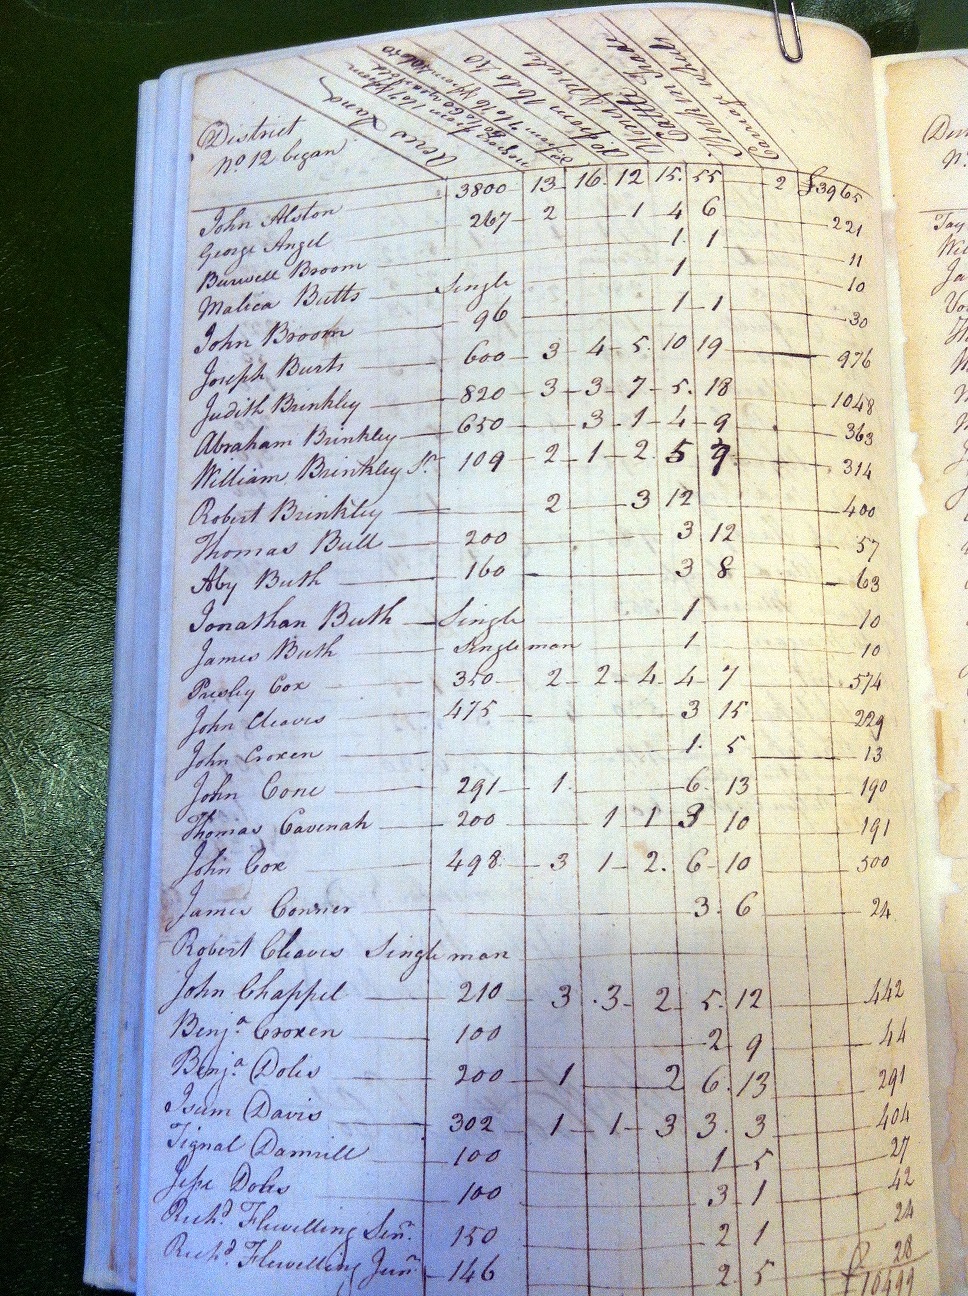 District
No. 12 began
Acres Land
John Alston 3800 13 16 12 15 55 2 £3965
George Angel 267 2 1 4 6 221
Burwell Broom 1 1 11
Malica Butts Single 1 10
John Broom 96 1 1 30
Joseph Burts 600 3 4 5 10 19 976
Judith Brinkley 820 3 3 7 5 18 1048
Abraham Brinkley 650 3 1 4 9 363
William Brinkley Sr 109 2 1 2 5 9 314
Robert Brinkley 2 3 12 400
Thomas Bull 200 3 12 57
Aby Buth 160 3 8 63
Jonathan Buth Single 1 10
James Buth Single man 1 10
Presley Cox 350 2 2 4 4 7 574
John Cleaves 475 3 15 229
John Croxen 1 5 13
John Cone 291 1 6 13 190
Thomas Cavenah 200 1 1 3 10 191
John Cox 498 3 1 2 6 10 500
James Conner 3 6 24
Robert Cleaves Single man
John Chappel 210 3 3 2 5 12 442
Benja. Croxen 100 2 9 44
Benja. Doles 200 1 2 6 13 291
Isum Davis 302 1 1 3 3 3 404
Tignal Damrill 100 1 5 27
Jesse Doles 100 3 1 42
Richd. Flewelling Senr. 150 2 1 24
Richd. Flewelling Junr. 146 2 5 28
£10499